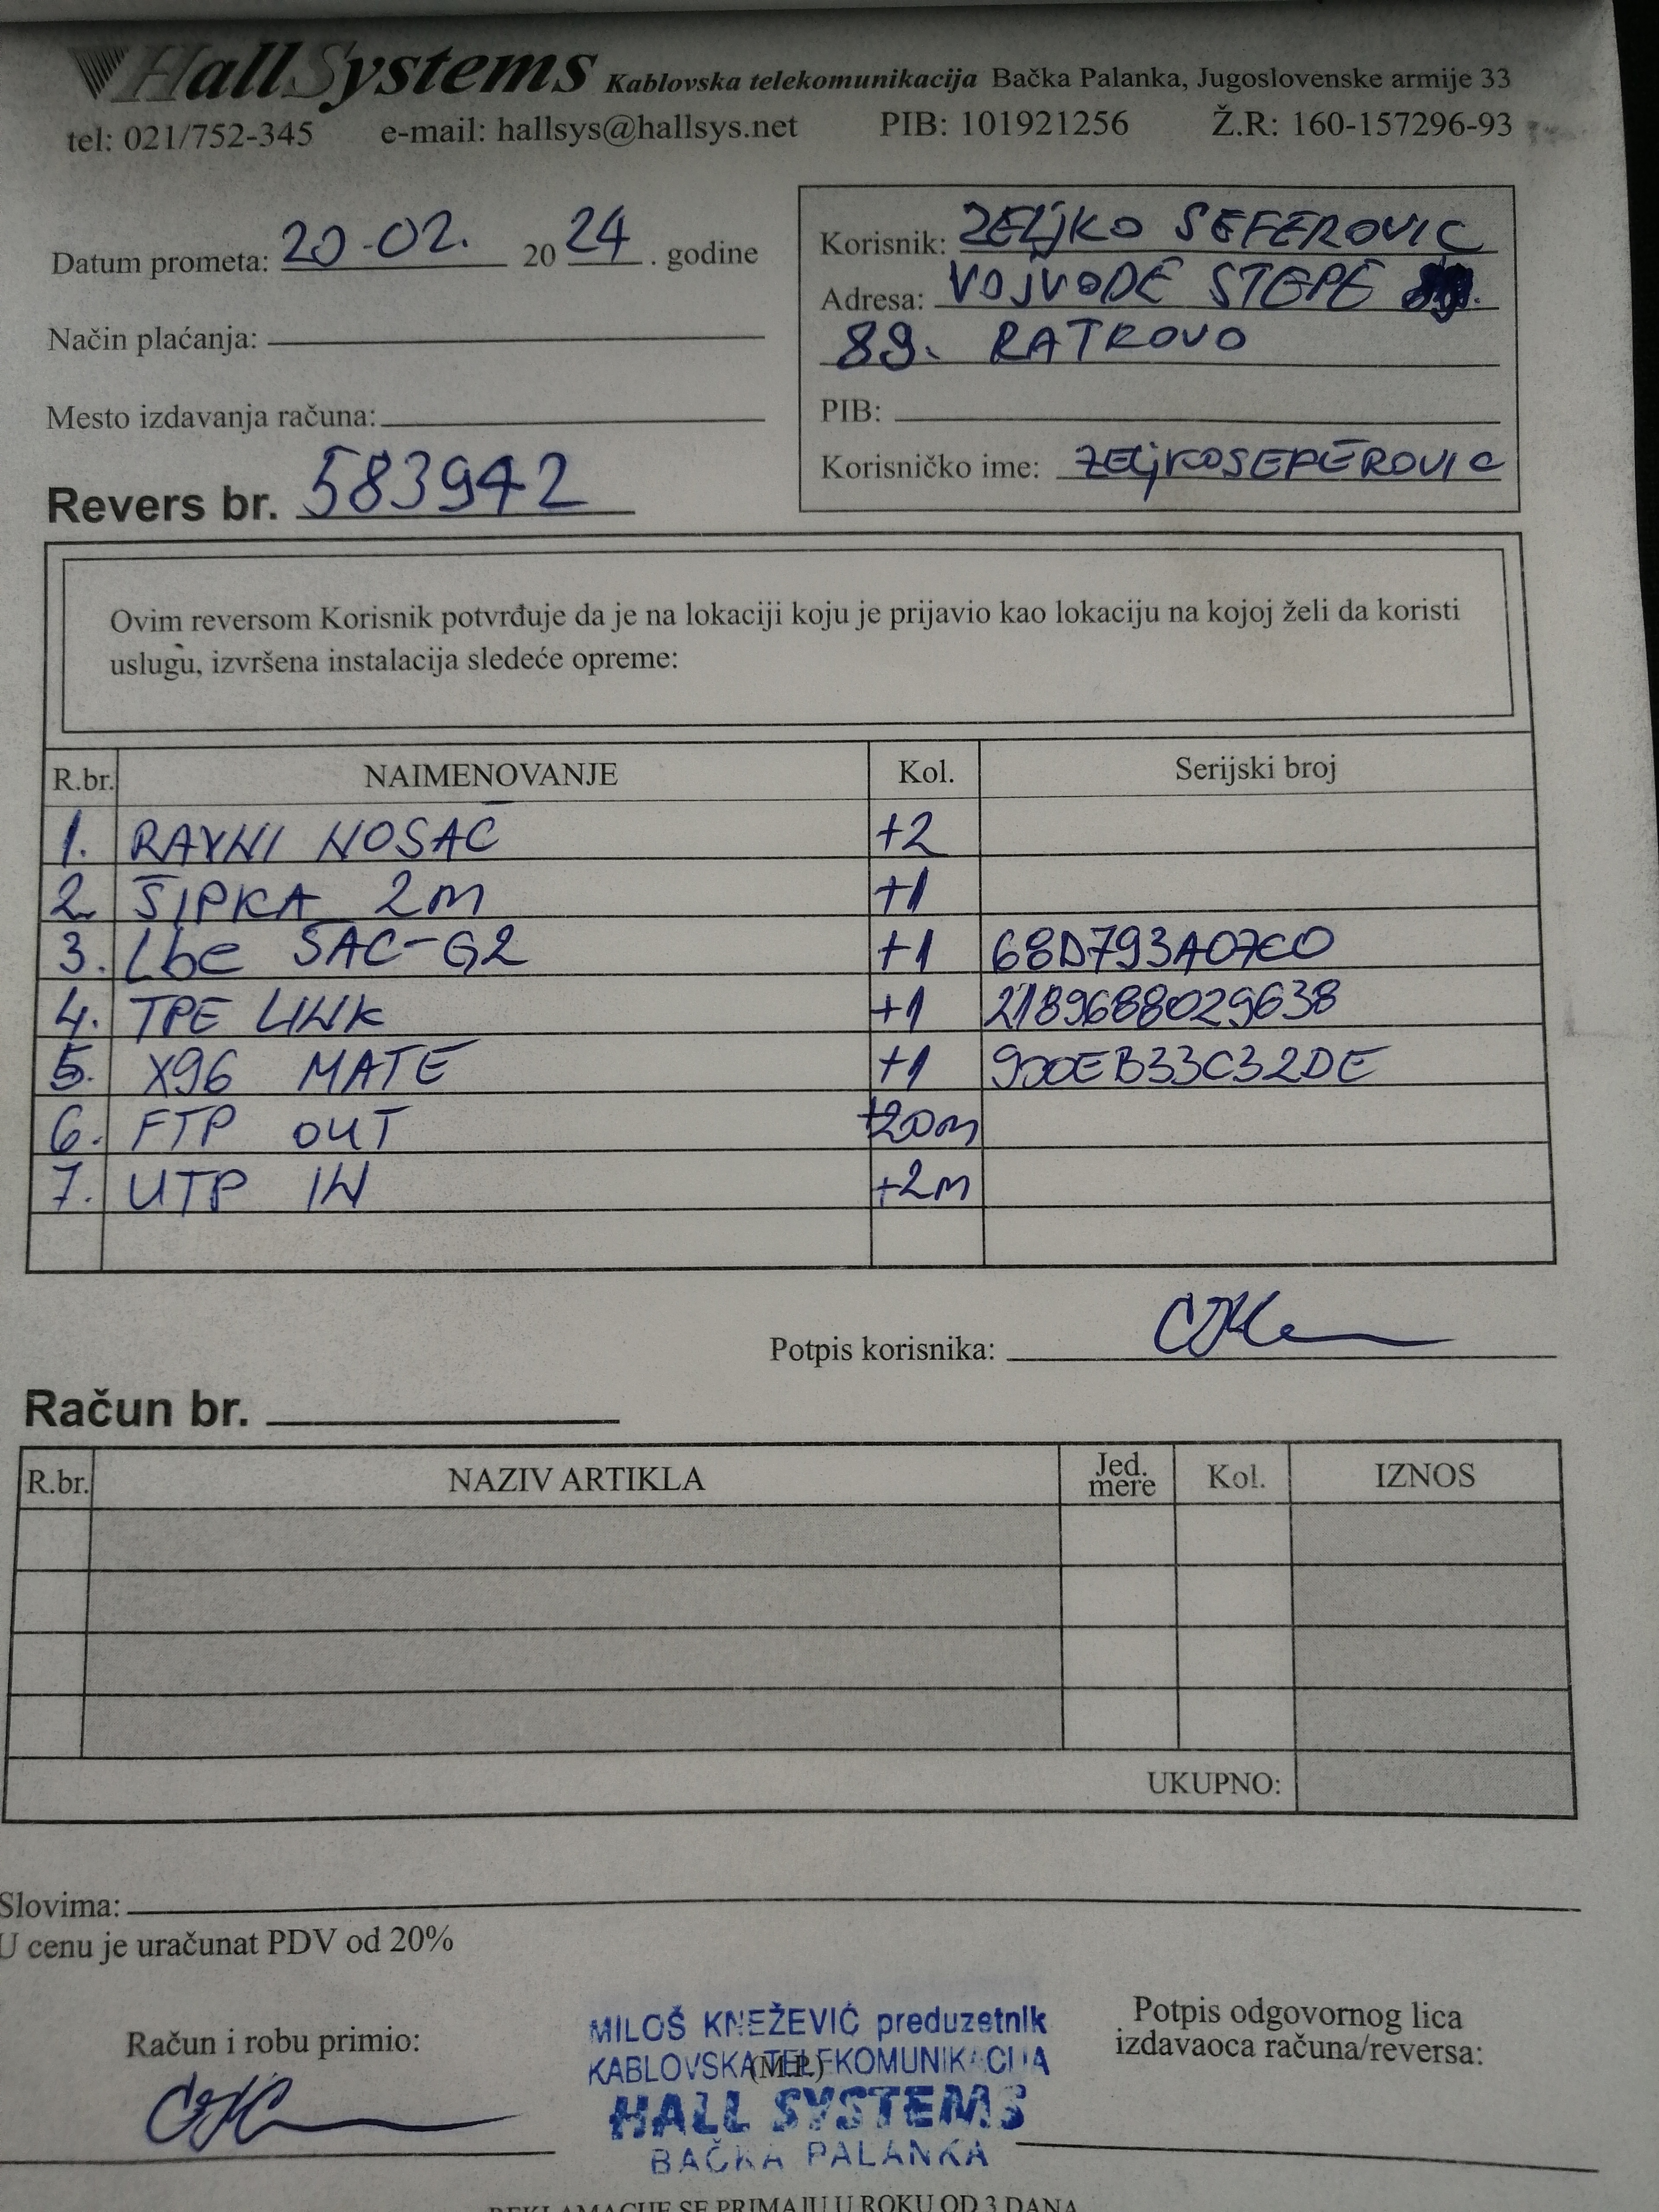 HallSystems Kablovska telekomunikacija Bačka Palanka, Jugoslovenske armije 33
tel: 021/752-345 e-mail: hallsys@hallsys.net PIB: 101921256 Ž.R: 160-157296-93
Datum prometa: 20-02. 20 24 . godine
Način plaćanja:
Mesto izdavanja računa:
Revers br. 583942
Korisnik: ZELJKO SEFEROVIC
Adresa: VOJVODE STEPE
89. RATKOVO
PIB:
Korisničko ime: ZELJKOSEFEROVIC
Ovim reversom Korisnik potvrđuje da je na lokaciji koju je prijavio kao lokaciju na kojoj želi da koristi
uslugu, izvršena instalacija sledeće opreme:
R.br. NAIMENOVANJE Kol. Serijski broj
1. RAVNI NOSAČ +2
2. ŠIPKA 2m +1
3. Lbe 5AC-G2 +1 68D793A07EC0
4. TPE LINK +1 2189688029638
5. X96 MATE +1 900EB33C32DE
6. FTP OUT +20m
7. UTP IN +2m
Potpis korisnika:
Račun br.
R.br. NAZIV ARTIKLA Jed. mere Kol. IZNOS
UKUPNO:
Slovima:
U cenu je uračunat PDV od 20%
Račun i robu primio:
MILOŠ KNEŽEVIĆ preduzetnik
KABLOVSKA TELEKOMUNIKACIJA
(M.P.)
HALL SYSTEMS
BAČKA PALANKA
Potpis odgovornog lica
izdavaoca računa/reversa:
REKLAMACIJE SE PRIMAJU U ROKU OD 3 DANA